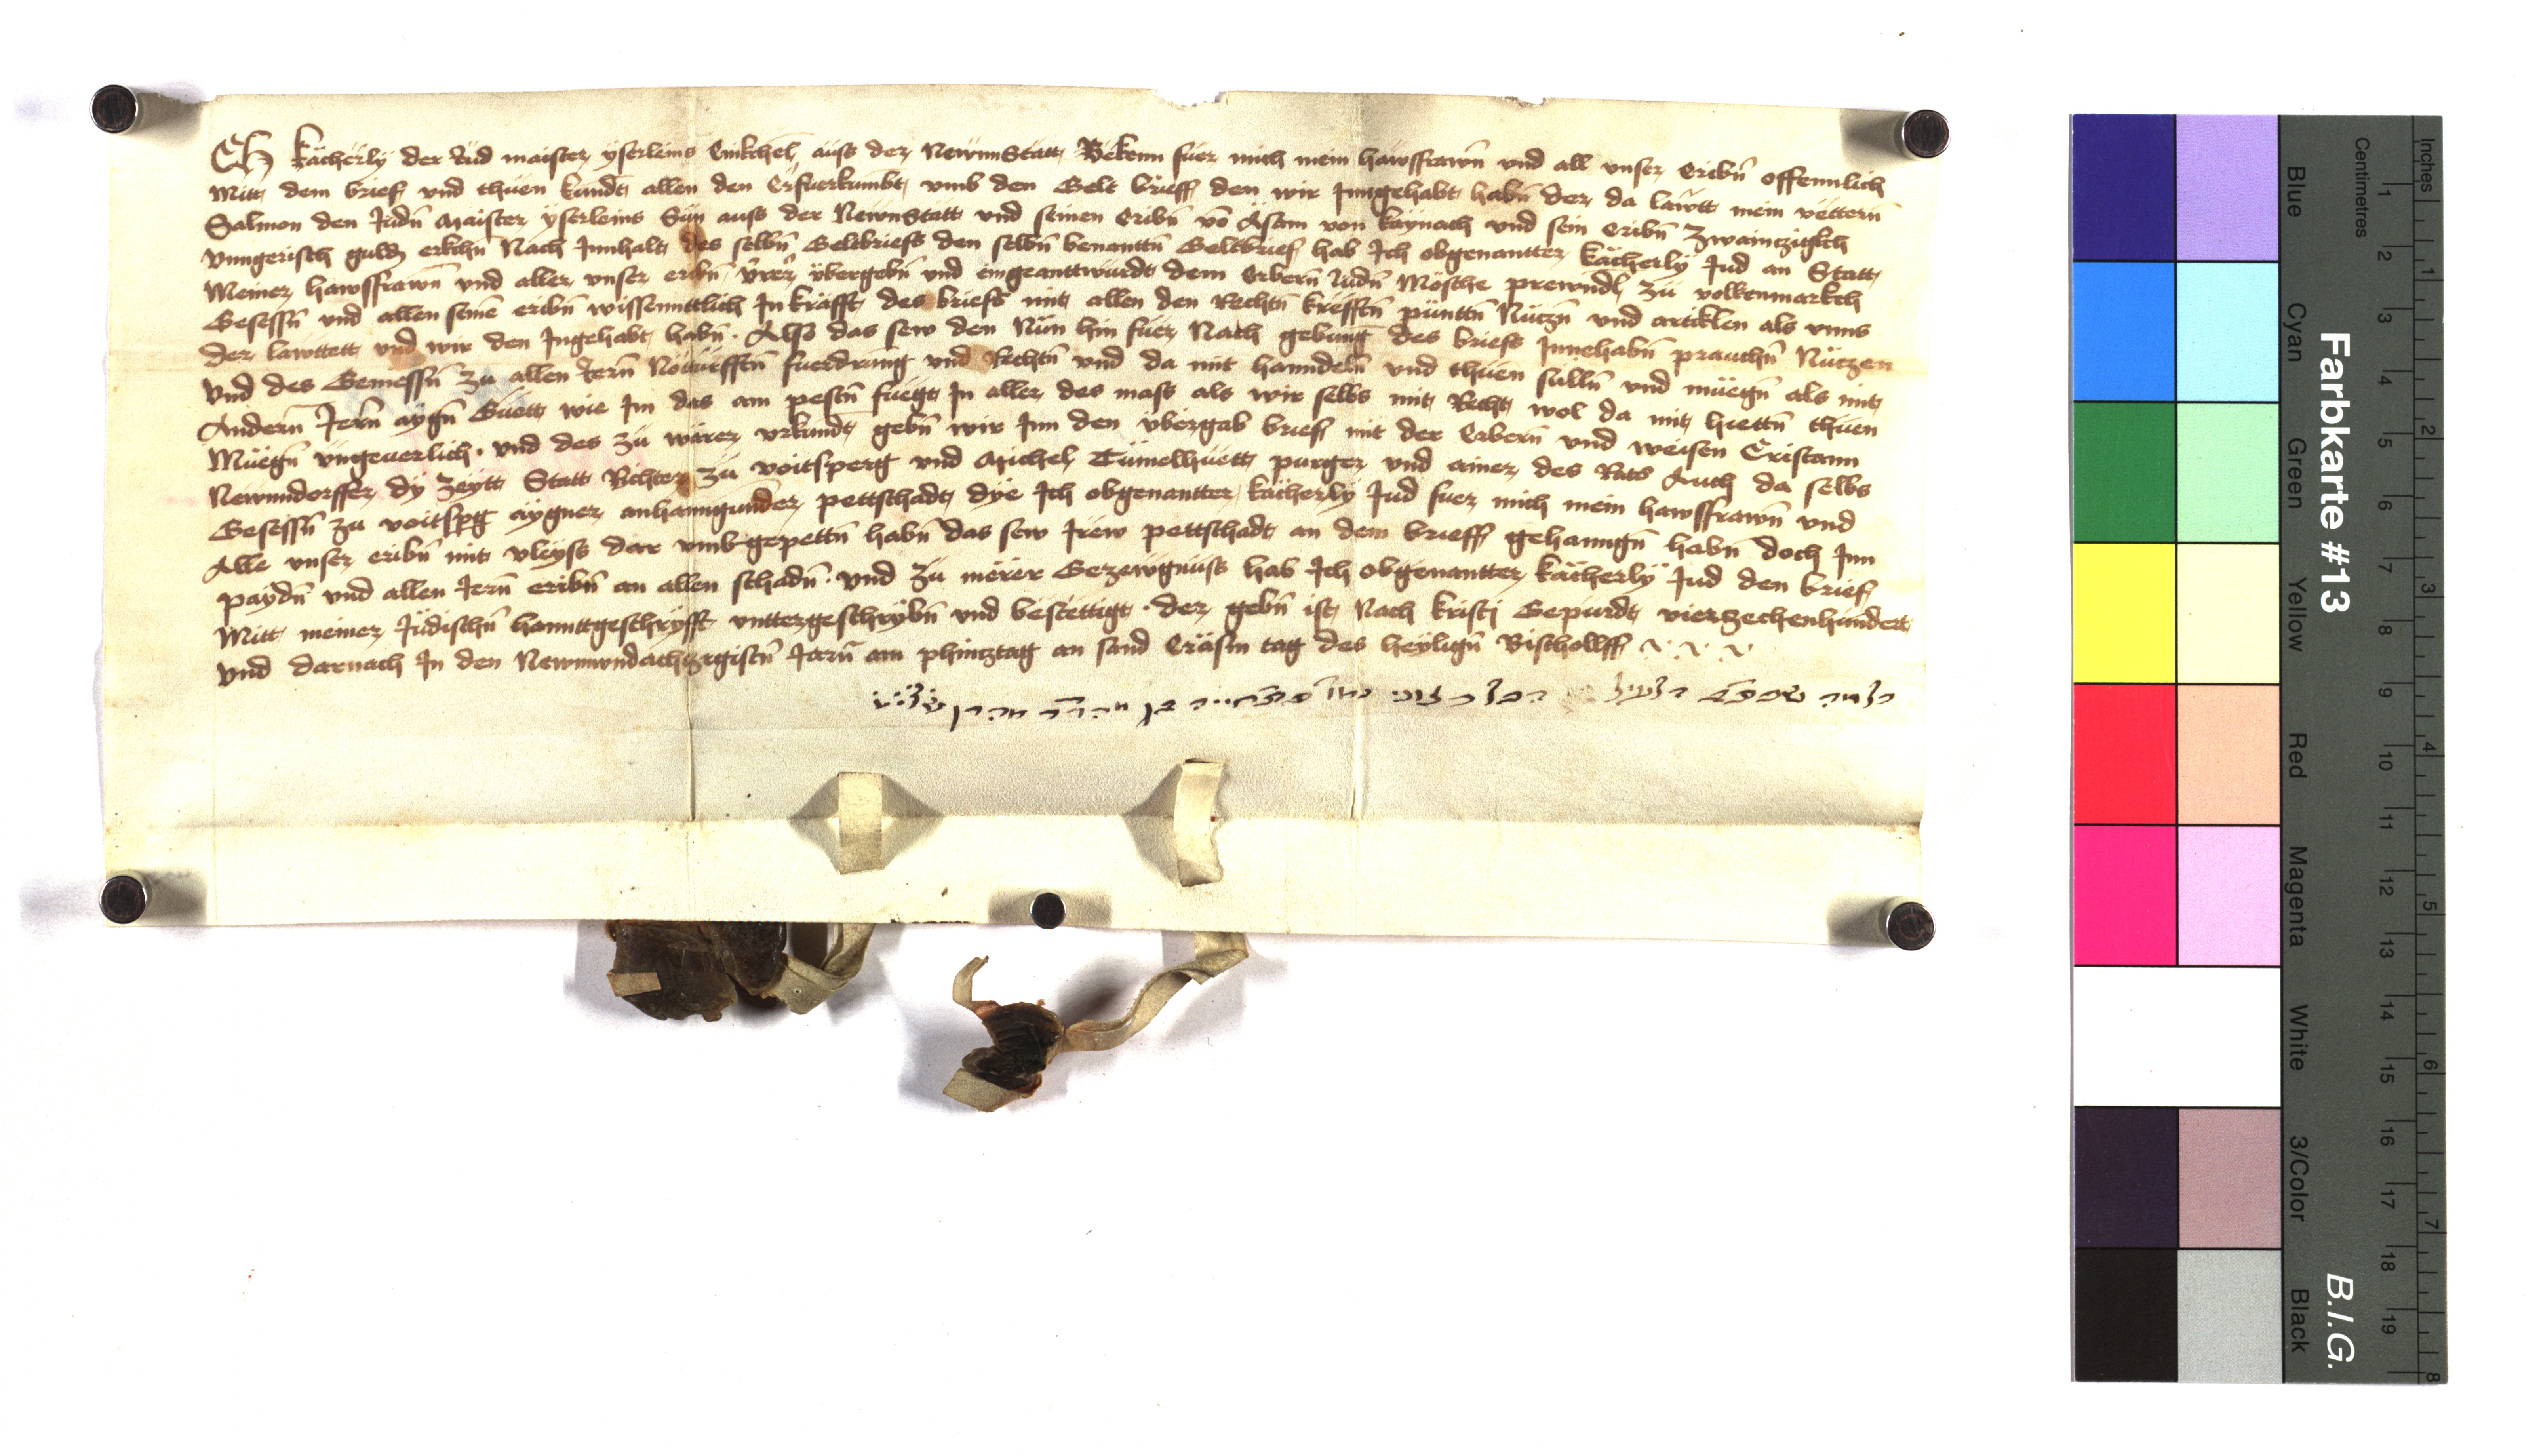 Ich kächerly der Jud maister yserleins Enikchel auss der NewnStatt Bekenn fuer mich mein hawsfrawn̄ vnd all vnser Eribn̄ offennlich
Mitt dem brief vnd thuen kundt allen den Er fuerkumbt vmb den Gelt brieff den wir Inngehabt habn̄ der da lawtt mein vettern̄
Salmon den Judn̄ Maister yserleins Sün auss der NewnStatt vnd seinen Eribn̄ vō Äsam von kaynach vnd sein Eribn̄ Zwainczigkch
vnngerisch guldn̄ Nach Innhalt des selbn̄ Geltbriefs den selbn̄ benanttn̄ Geltbrief hab Ich obgenantter kächerly Jud an Statt
Meiner hawsfrawn̄ vnd aller vnser eribn̄ vbergebn̄ vnd eingeanttwurdt dem Erbern̄ Judn̄ Mosche prewndl zu volkenmarkch
Gesessn̄ vnd allen seinē eribn̄ wissenntlich In krafft des briefs mit allen den Rechtn̄ krefftn̄ punttn̄ Nuczn̄ vnd artiklen als vnns
der lawttett vnd wir den Ingehabt habn̄ . Also das sew den Nün hin fuer Nach gebung des briefs Innehabn̄ prauchn̄ Nüczen
vnd des Geniessn̄ zu allen Jern̄ Nodurfftn̄ fuerdrung vnd Rechtn̄ vnd da mit hanndeln̄ vnd thuen sulln̄ vnd müegn̄ als mit
Andern̄ Jern̄ aygn̄ Guett wie Im das am pestn̄ fuegt In aller des mass als wir selbs mit Recht wol da mit hiettn̄ thuen
Müegn̄ vngeuerlich . vnd des zu warer vrkundt gebn̄ wir Im den vbergab brief mit der Erbern̄ vnd weisen Cristann
Newnndorffer dy Zeytt Statt Richter zu voitsperg vnd Michel Tümelhuett purger vnd ainer des Rats Auch da selbs
Gesessn̄ zu voitspg aygner anhanngunder pettschadt dye Ich obgenantter kächerly Jud fuer mich mein hawsfrawn̄ vnd
Alle vnser eribn̄ mit vleyss dar vmb gepettn̄ habn̄ das sew Irew pettschadt an dem brieff gehanngn̄ habn̄ doch Inn
paydn̄ vnd allen Jern̄ eribn̄ an allen schadn̄ . vnd zu merer Gezewgnuss hab Ich obgenantter kächerly Jud den brief
Mitt meiner Judischn̄ hanntgeschryfft vnttergeschrybn̄ vnd bestettigt . der gebn̄ ist Nach kristi Gepurdt vierzechenhundert
vnd darnach In den Newnvndachczigistn̄ Jarn̄ am phincztag an sand Eräsm tag des heylign̄ Bischollff
Farbkarte #13
B.I.G.
Centimetres
Inches
Blue
Cyan
Green
Yellow
Red
Magenta
White
3/Color
Black
1 2 3 4 5 6 7 8 9 10 11 12 13 14 15 16 17 18 19
1 2 3 4 5 6 7 8